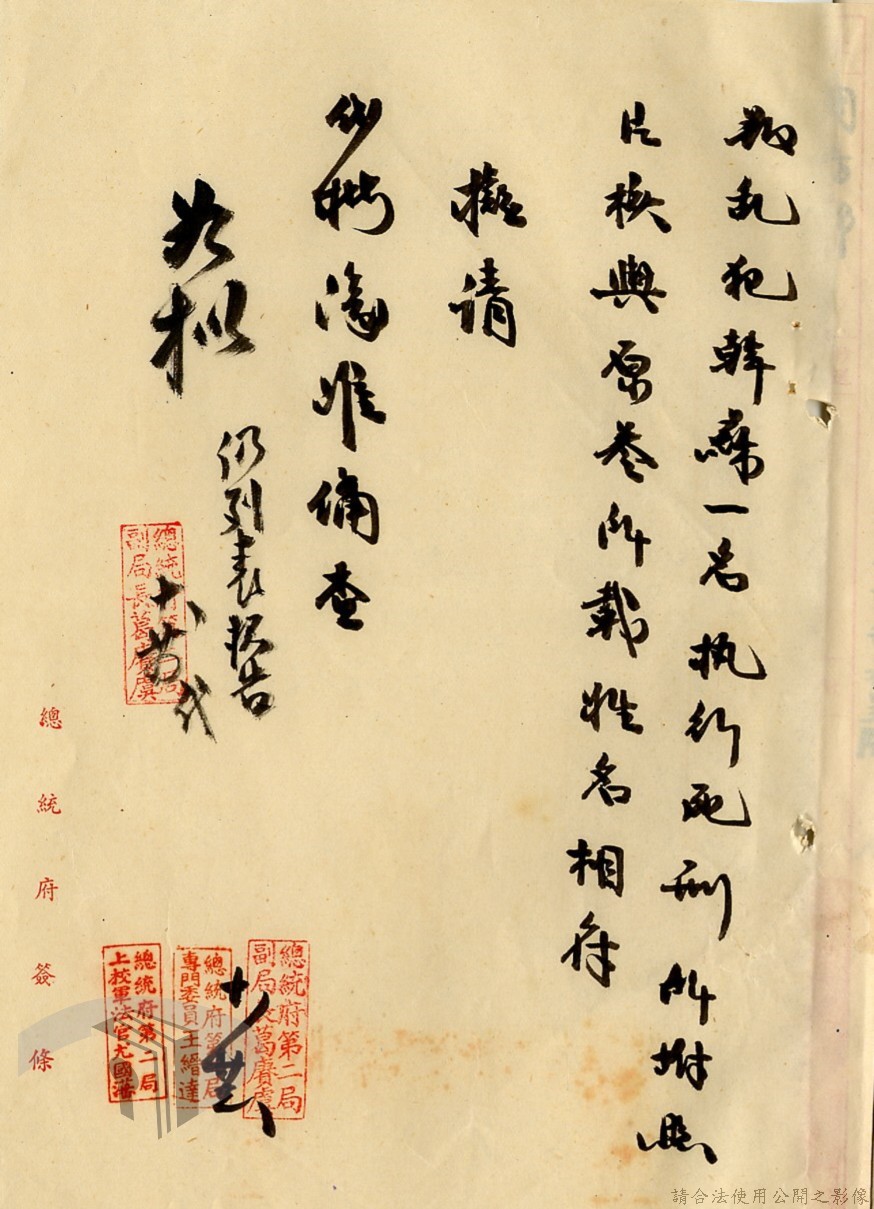 叛乱犯韓嘯一名执行死刑所附照
片核與原卷所載姓名相符
擬請
准備查
如拟
仍列表報告
總統府第二局
副局長葛賡虞
十 代
總統府第二局
副局長葛賡虞
總統府第二局
專門委員王縉達
總統府第二局
上校軍法官尤國藩
總統府簽條
請合法使用公開之影像